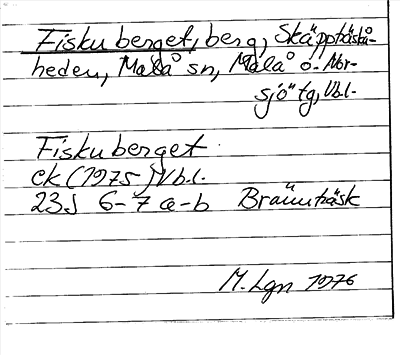 Fiskuberget, berg, Skäppträskå-
heden, Malå sn, Malå o. Nor-
sjö tg, Vbl.
Fiskuberget
ek (1975) Vbl.
23J 6-7 a-b Brännträsk
M. Lgn 1976